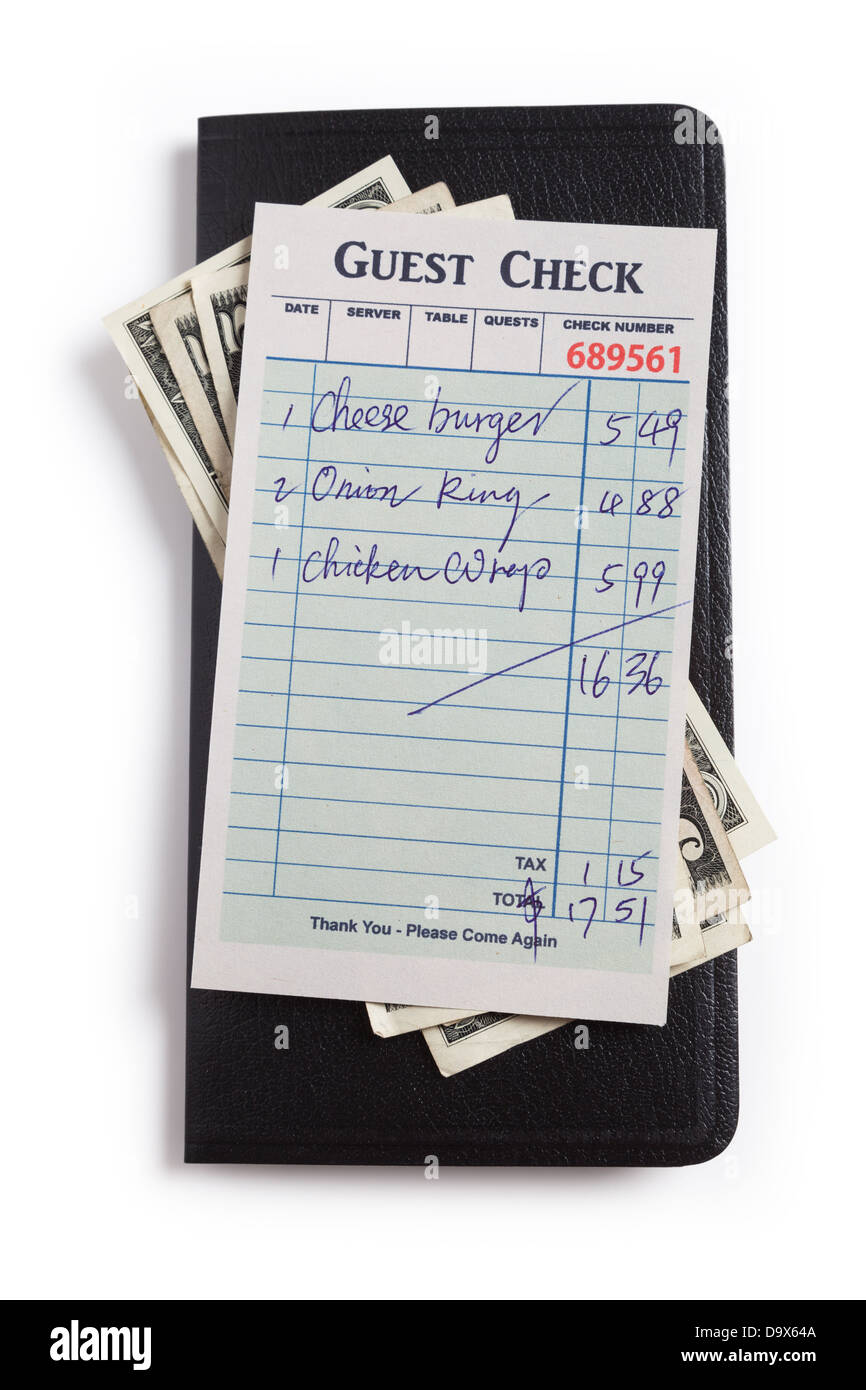 GUEST CHECK
DATE SERVER TABLE QUESTS CHECK NUMBER
689561
1 Cheese burger 5 49
2 Onion Ring 4 88
1 Chicken Wrap 5 99
16 36
TAX 1 15
TOTAL 17 51
Thank You - Please Come Again
alamy
Image ID: D9X64A
www.alamy.com